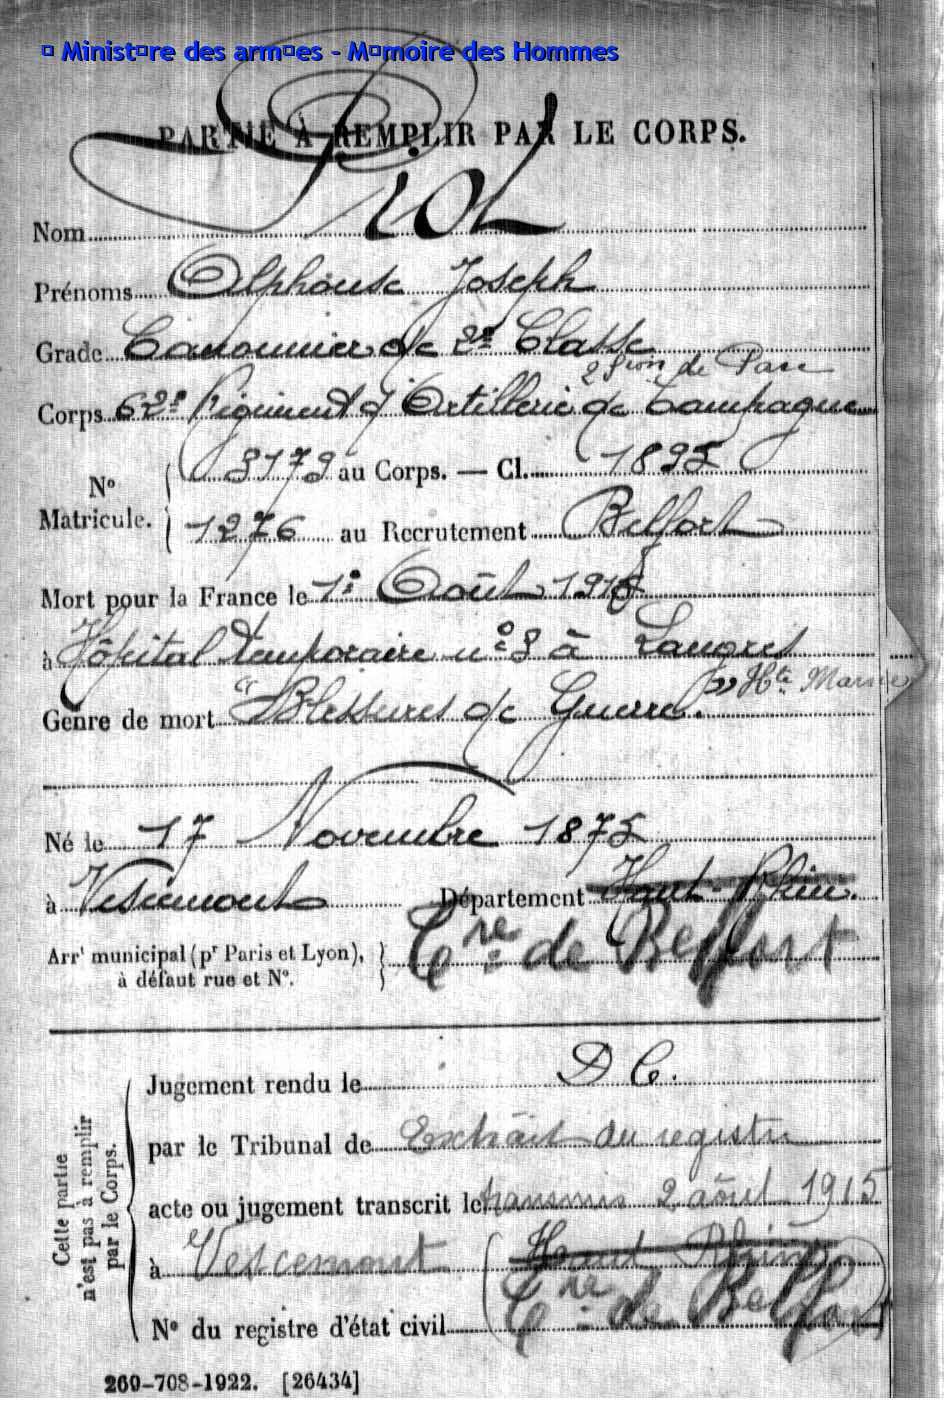 � Minist�re des arm�es - M�moire des Hommes
PARTIE À REMPLIR PAR LE CORPS.
Nom Piot
Prénoms Alphonse Joseph
Grade Canonnier de 2e Classe
2 Son de Parc
Corps 62e Régiment d'Artillerie de Campagne
No Matricule. { 3179 au Corps. — Cl. 1895
1276 au Recrutement Belfort
Mort pour la France le 1er Août 1915
à Hôpital temporaire no 3 à Langres
Hte Marne
Genre de mort "Blessures de Guerre."
Né le 17 Novembre 1875
à Vescemont Département Haut-Rhin.
Arrt municipal (pr Paris et Lyon), à défaut rue et No. } Tre de Belfort
Cette partie n'est pas à remplir par le Corps.
Jugement rendu le D C.
par le Tribunal de Extrait du registre
acte ou jugement transcrit le transmis 2 août 1915
à Vescemont (Haut Rhin
Tre de Belfort)
No du registre d'état civil
260-708-1922. [26434]